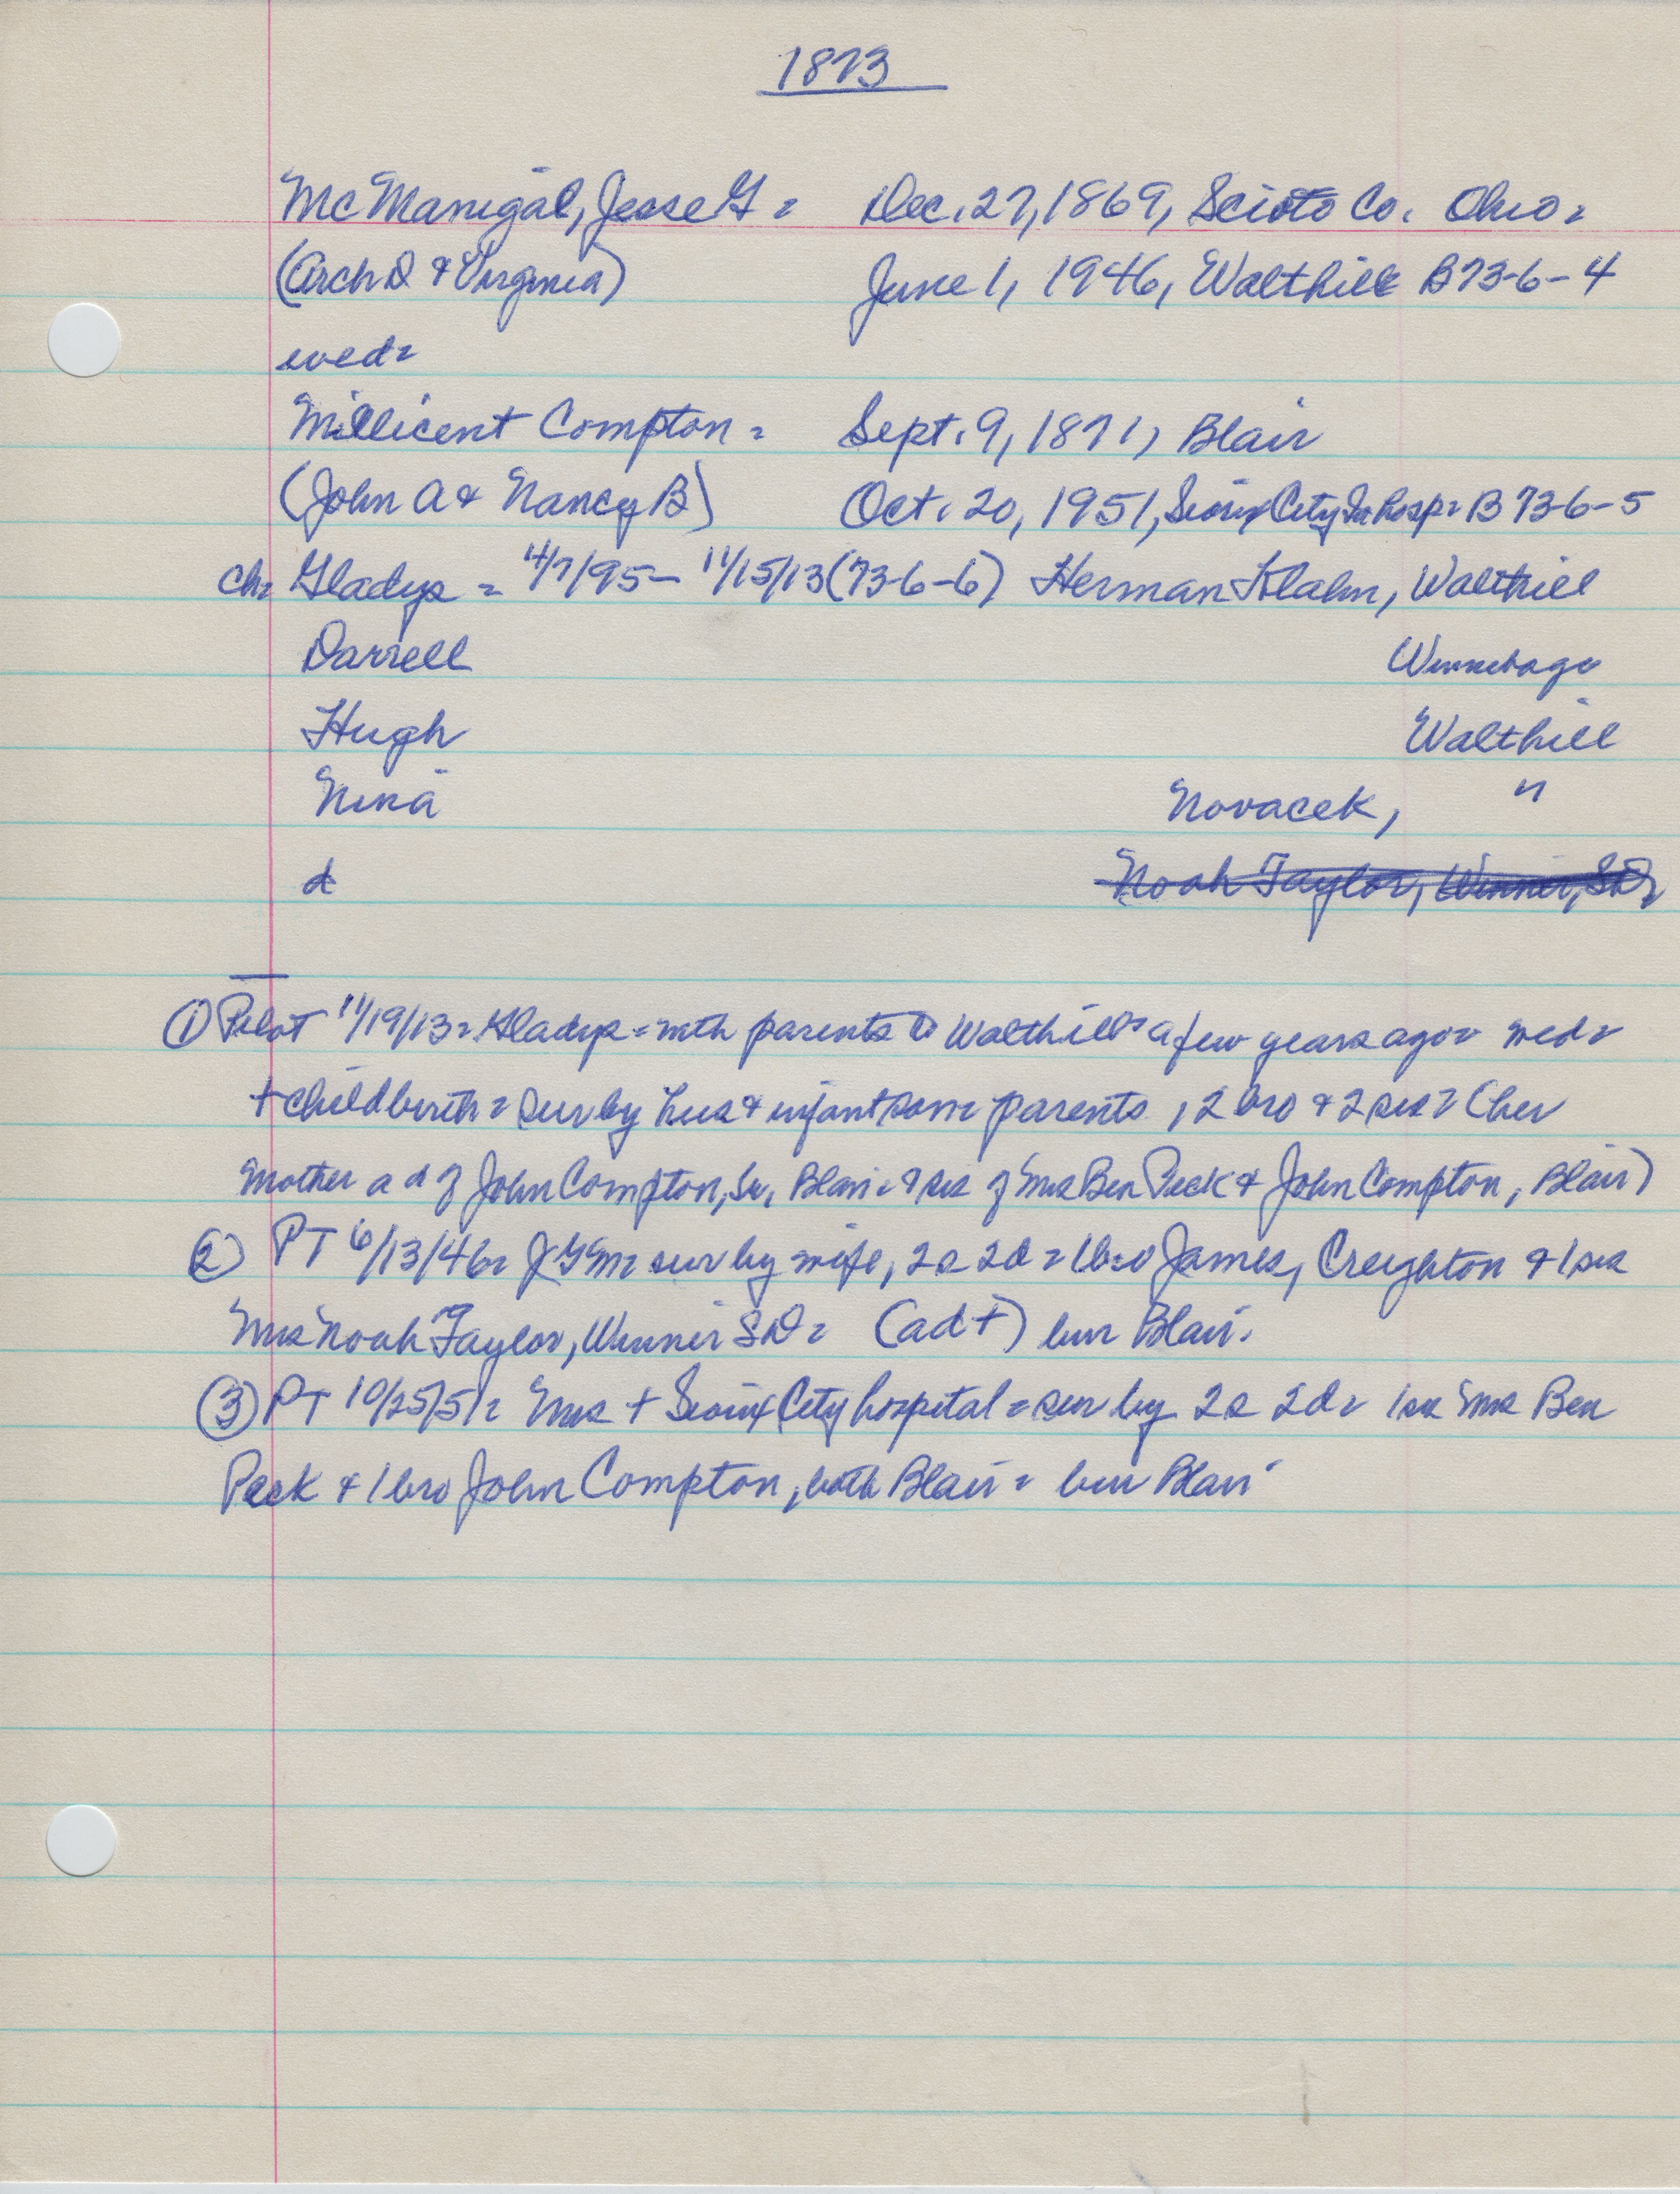 1873
McManigal, Jesse G = Dec. 27, 1869, Scioto Co. Ohio =
(Arch D & Virginia) June 1, 1946, Walthill B73-6-4
wed =
Millicent Compton = Sept. 9, 1871, Blair
(John A & Nancy B) Oct. 20, 1951, Sioux City Ia hosp = B 73-6-5
ch = Gladys = 4/7/95 – 11/15/13 (73-6-6) Herman Klahn, Walthill
Darrell Winnebago
Hugh Walthill
Nina Novacek, "
d Noah Taylor, Winner, SD =
① Pilot 11/19/13 = Gladys = with parents to Walthill a few years ago = wed =
+ childbirth = sur by hus & infant son = parents, 2 bro & 2 sis = (her
mother a d of John Compton, Sr, Blair = & sis of Mrs Ben Peck & John Compton, Blair)
② PT 6/13/46 = JGM = sur by wife, 2s 2d = 1 bro James, Creighton & 1 sis
Mrs Noah Taylor, Winner SD = (ad +) bur Blair.
③ PT 10/25/51 = Mrs + Sioux City hospital = sur by 2s 2d = 1 sis Mrs Ben
Peck & 1 bro John Compton, both Blair = bur Blair